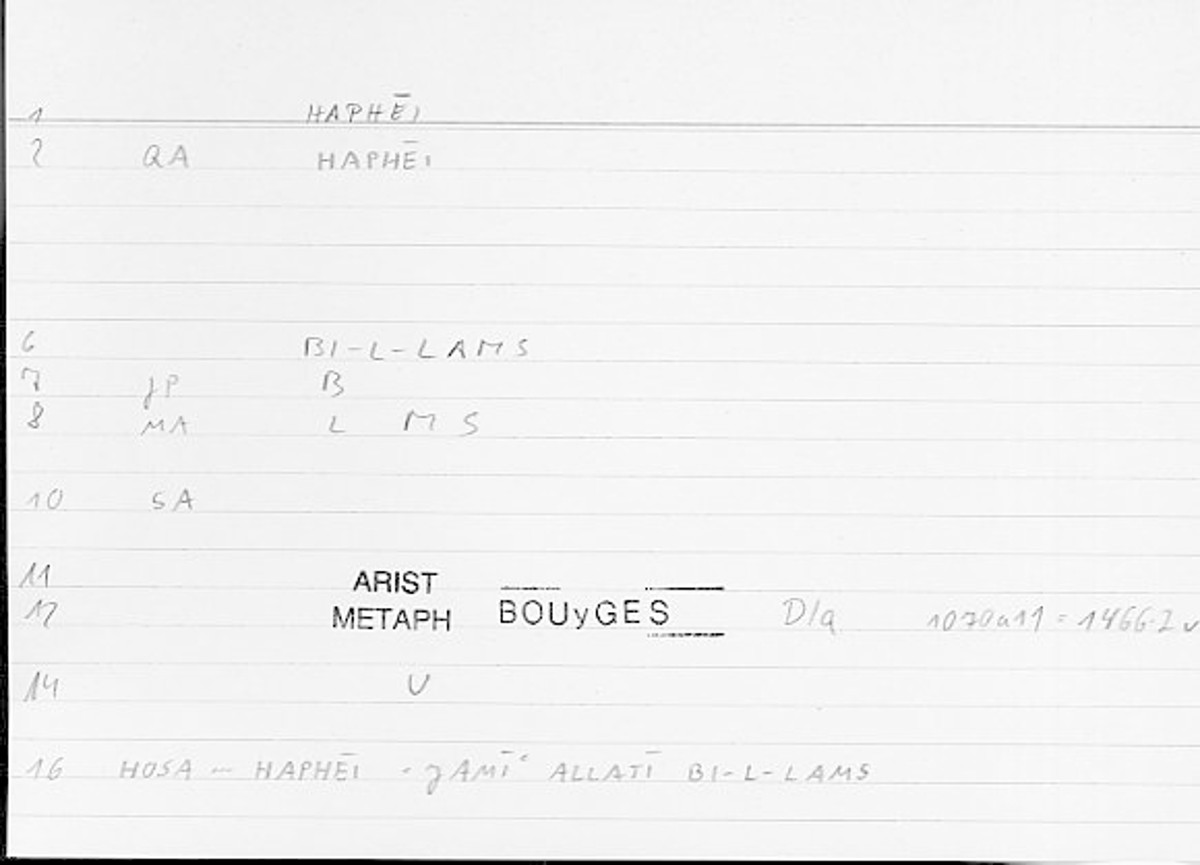 1 HAPHĒI
2 QA HAPHĒI
6 BI-L-LAMS
7 JP B
8 MA L M S
10 SA
11 ARIST
12 METAPH BOUyGES D/q 1070a11 = 1466.2
14 U
16 HOSA – HAPHĒI - JAMĪʿ ALLATĪ BI-L-LAMS